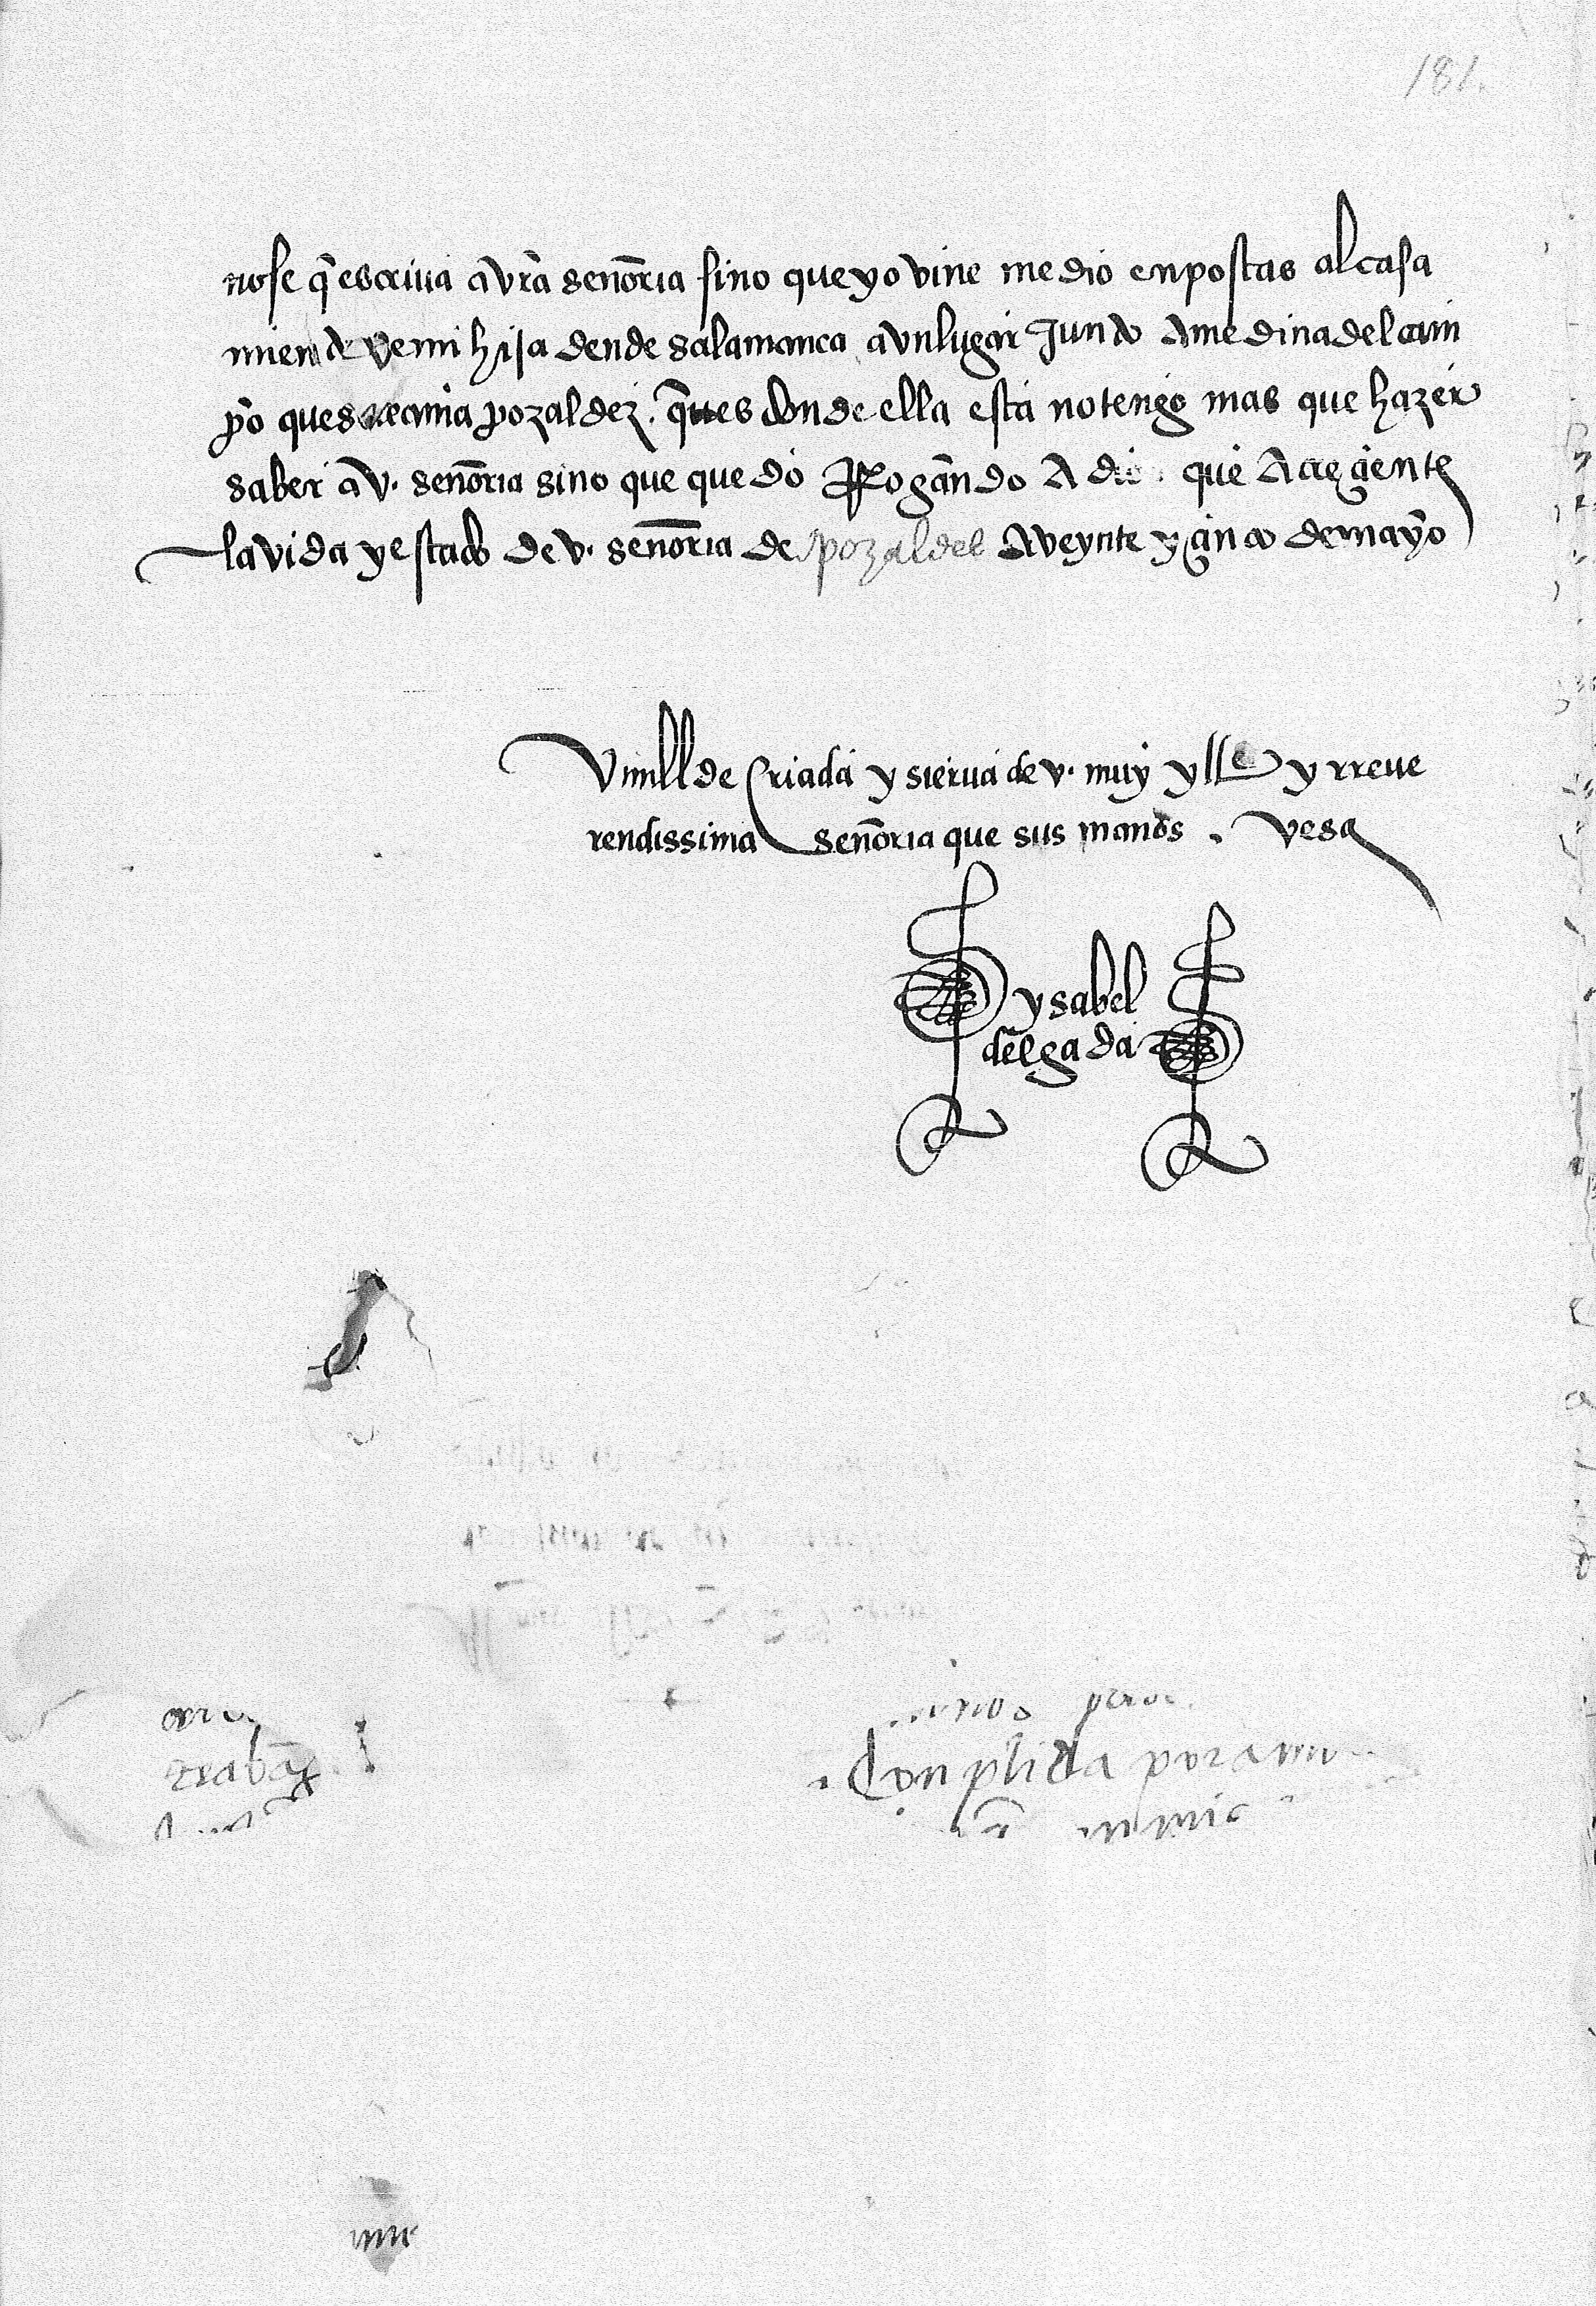 181.
nose q̃ escriua a vr̃a señoria sino que yo vine medio en postas al casa
miento de mi hija dende salamanca a vn lugar Junto A medina del cam
po ques llama pozaldez. ques donde ella está no tengo mas que hazer
saber a v. señoria sino que quedo Rrogando A dios que Acreçiente
la vida y estado de v. señoria de pozaldez A veynte y çinco de mayo
Vmillde Criada y sierua de v. muy ylle y rreue
rendissima señoria que sus manos . vesa
ysabel
delgada
Conplida por